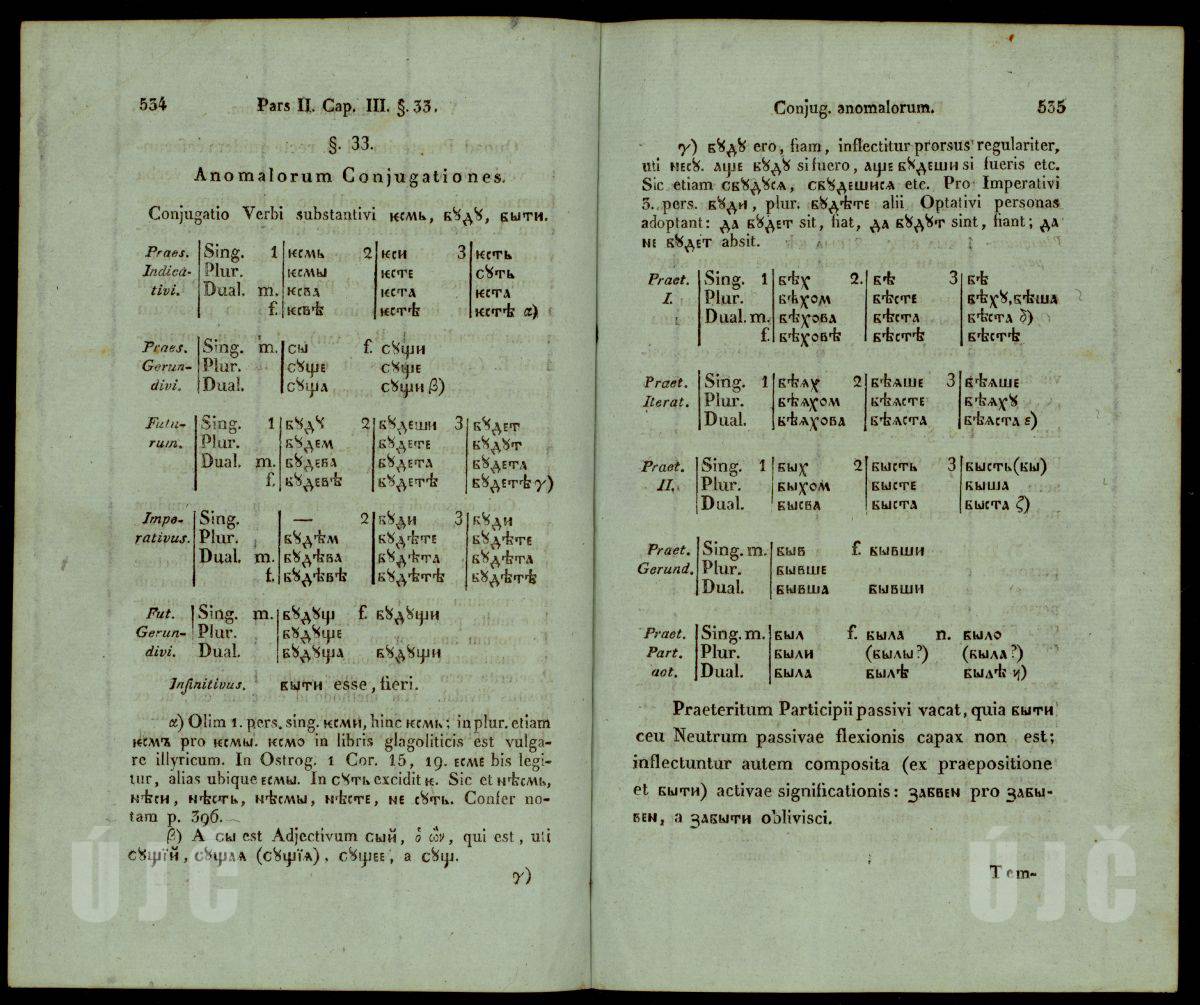 534 Pars II. Cap. III. §. 33.
§. 33.
Anomalorum Conjugationes.
Conjugatio Verbi substantivi ѥсмь, бꙋдꙋ, быти.
Praes. Sing. 1 ѥсмь 2 ѥси 3 ѥсть
Indica- Plur. ѥсмы ѥсте сꙋть
tivi. Dual. m. ѥсва ѥста ѥста
f. ѥсвѣ ѥстѣ ѥстѣ α)
Praes. Sing. m. сы f. сꙋщи
Gerun- Plur. сꙋще сꙋще
divi. Dual. сꙋща сꙋщи β)
Futu- Sing. 1 бꙋдꙋ 2 бꙋдеши 3 бꙋдет
rum. Plur. бꙋдем бꙋдете бꙋдꙋт
Dual. m. бꙋдева бꙋдета бꙋдета
f. бꙋдевѣ бꙋдетѣ бꙋдетѣ γ)
Impe- Sing. — 2 бꙋди 3 бꙋди
rativus. Plur. бꙋдѣм бꙋдѣте бꙋдѣте
Dual. m. бꙋдѣва бꙋдѣта бꙋдѣта
f. бꙋдѣвѣ бꙋдѣтѣ бꙋдѣтѣ
Fut. Sing. m. бꙋдꙋщ f. бꙋдꙋщи
Gerun- Plur. бꙋдꙋще
divi. Dual. бꙋдꙋща бꙋдꙋщи
Infinitivus. быти esse, fieri.
α) Olim 1. pers. sing. ѥсми, hinc ѥсмь; in plur. etiam
ѥсмъ pro ѥсмы. ѥсмо in libris glagoliticis est vulga-
re illyricum. In Ostrog. 1 Cor. 15, 19. есме bis legi-
tur, alias ubique есмы. In сꙋть excidit ѥ. Sic et нѣсмь,
нѣси, нѣсть, нѣсмы, нѣсте, не сꙋть. Confer no-
tam p. 396.
β) A сы est Adjectivum сый, ὁ ὤν, qui est, uti
сꙋщїй, сꙋщаѧ (сꙋщїѧ), сꙋщее, a сꙋщ.
γ)
Conjug. anomalorum. 535
γ) бꙋдꙋ ero, fiam, inflectitur prorsus regulariter,
uti несꙋ. аще бꙋдꙋ si fuero, аще бꙋдеши si fueris etc.
Sic etiam сбꙋдꙋсѧ, сбꙋдешисѧ etc. Pro Imperativi
3. pers. бꙋди, plur. бꙋдѣте alii Optativi personas
adoptant: да бꙋдет sit, fiat, да бꙋдꙋт sint, fiant; да
не бꙋдет absit.
Praet. Sing. 1 бѣх 2. бѣ 3 бѣ
I. Plur. бѣхом бѣсте бѣхꙋ, бѣша
Dual. m. бѣхова бѣста бѣста δ)
f. бѣховѣ бѣстѣ бѣстѣ
Praet. Sing. 1 бѣѧх 2 бѣѧше 3 бѣѧше
Iterat. Plur. бѣѧхом бѣѧсте бѣѧхꙋ
Dual. бѣѧхова бѣѧста бѣѧста ε)
Praet. Sing. 1 бых 2 бысть 3 бысть (бы)
II. Plur. быхом бысте быша
Dual. бысва быста быста ζ)
Praet. Sing. m. быв f. бывши
Gerund. Plur. бывше
Dual. бывша бывши
Praet. Sing. m. был f. была n. было
Part. Plur. были (былы?) (была?)
act. Dual. была былѣ былѣ η)
Praeteritum Participii passivi vacat, quia быти
ceu Neutrum passivae flexionis capax non est;
inflectuntur autem composita (ex praepositione
et быти) activae significationis: забвен pro забы-
вен, a забыти oblivisci.
Tem-
ÚJČ ÚJČ